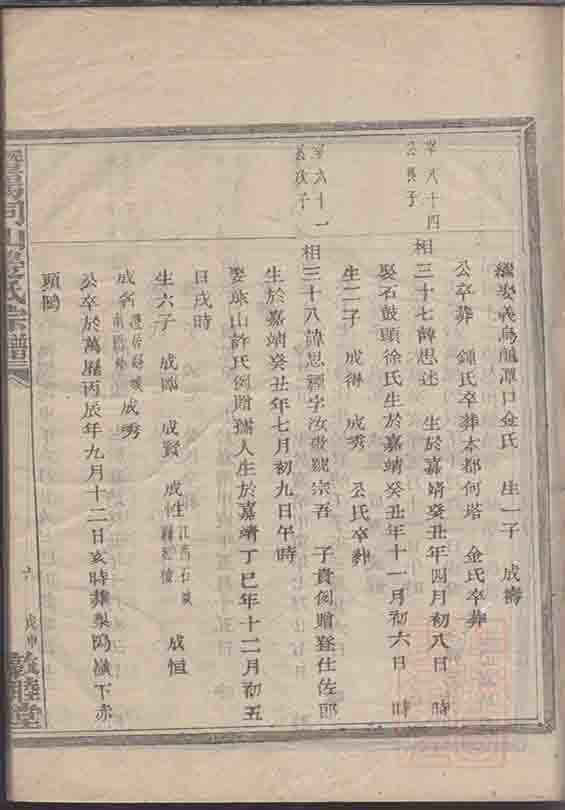 繼娶義烏龍潭口金氏 生一子 成壽
公卒葬 鍾氏卒葬本都何塔 金氏卒葬
华八十四
公長子
相三十七諱思述 生於嘉靖癸丑年四月初八日 時
娶石鼓頭徐氏生於嘉靖癸丑年十一月初六日 時
生二子 成得 成秀 公氏卒葬
华六十一
長次子
相三十八諱思 字汝 號宗吾 子貴例贈登仕佐郎
生於嘉靖癸丑年七月初九日午時
娶 山許氏例贈孺人生於嘉靖丁巳年十二月初五
日戌時
生六子 成 成賢 成生 江西石城 成恒
成 遷居 成秀
公卒於萬曆丙辰年九月十二日亥時葬 塢 下赤
頭塢
山 氏宗譜
六 戊申
敦睦堂